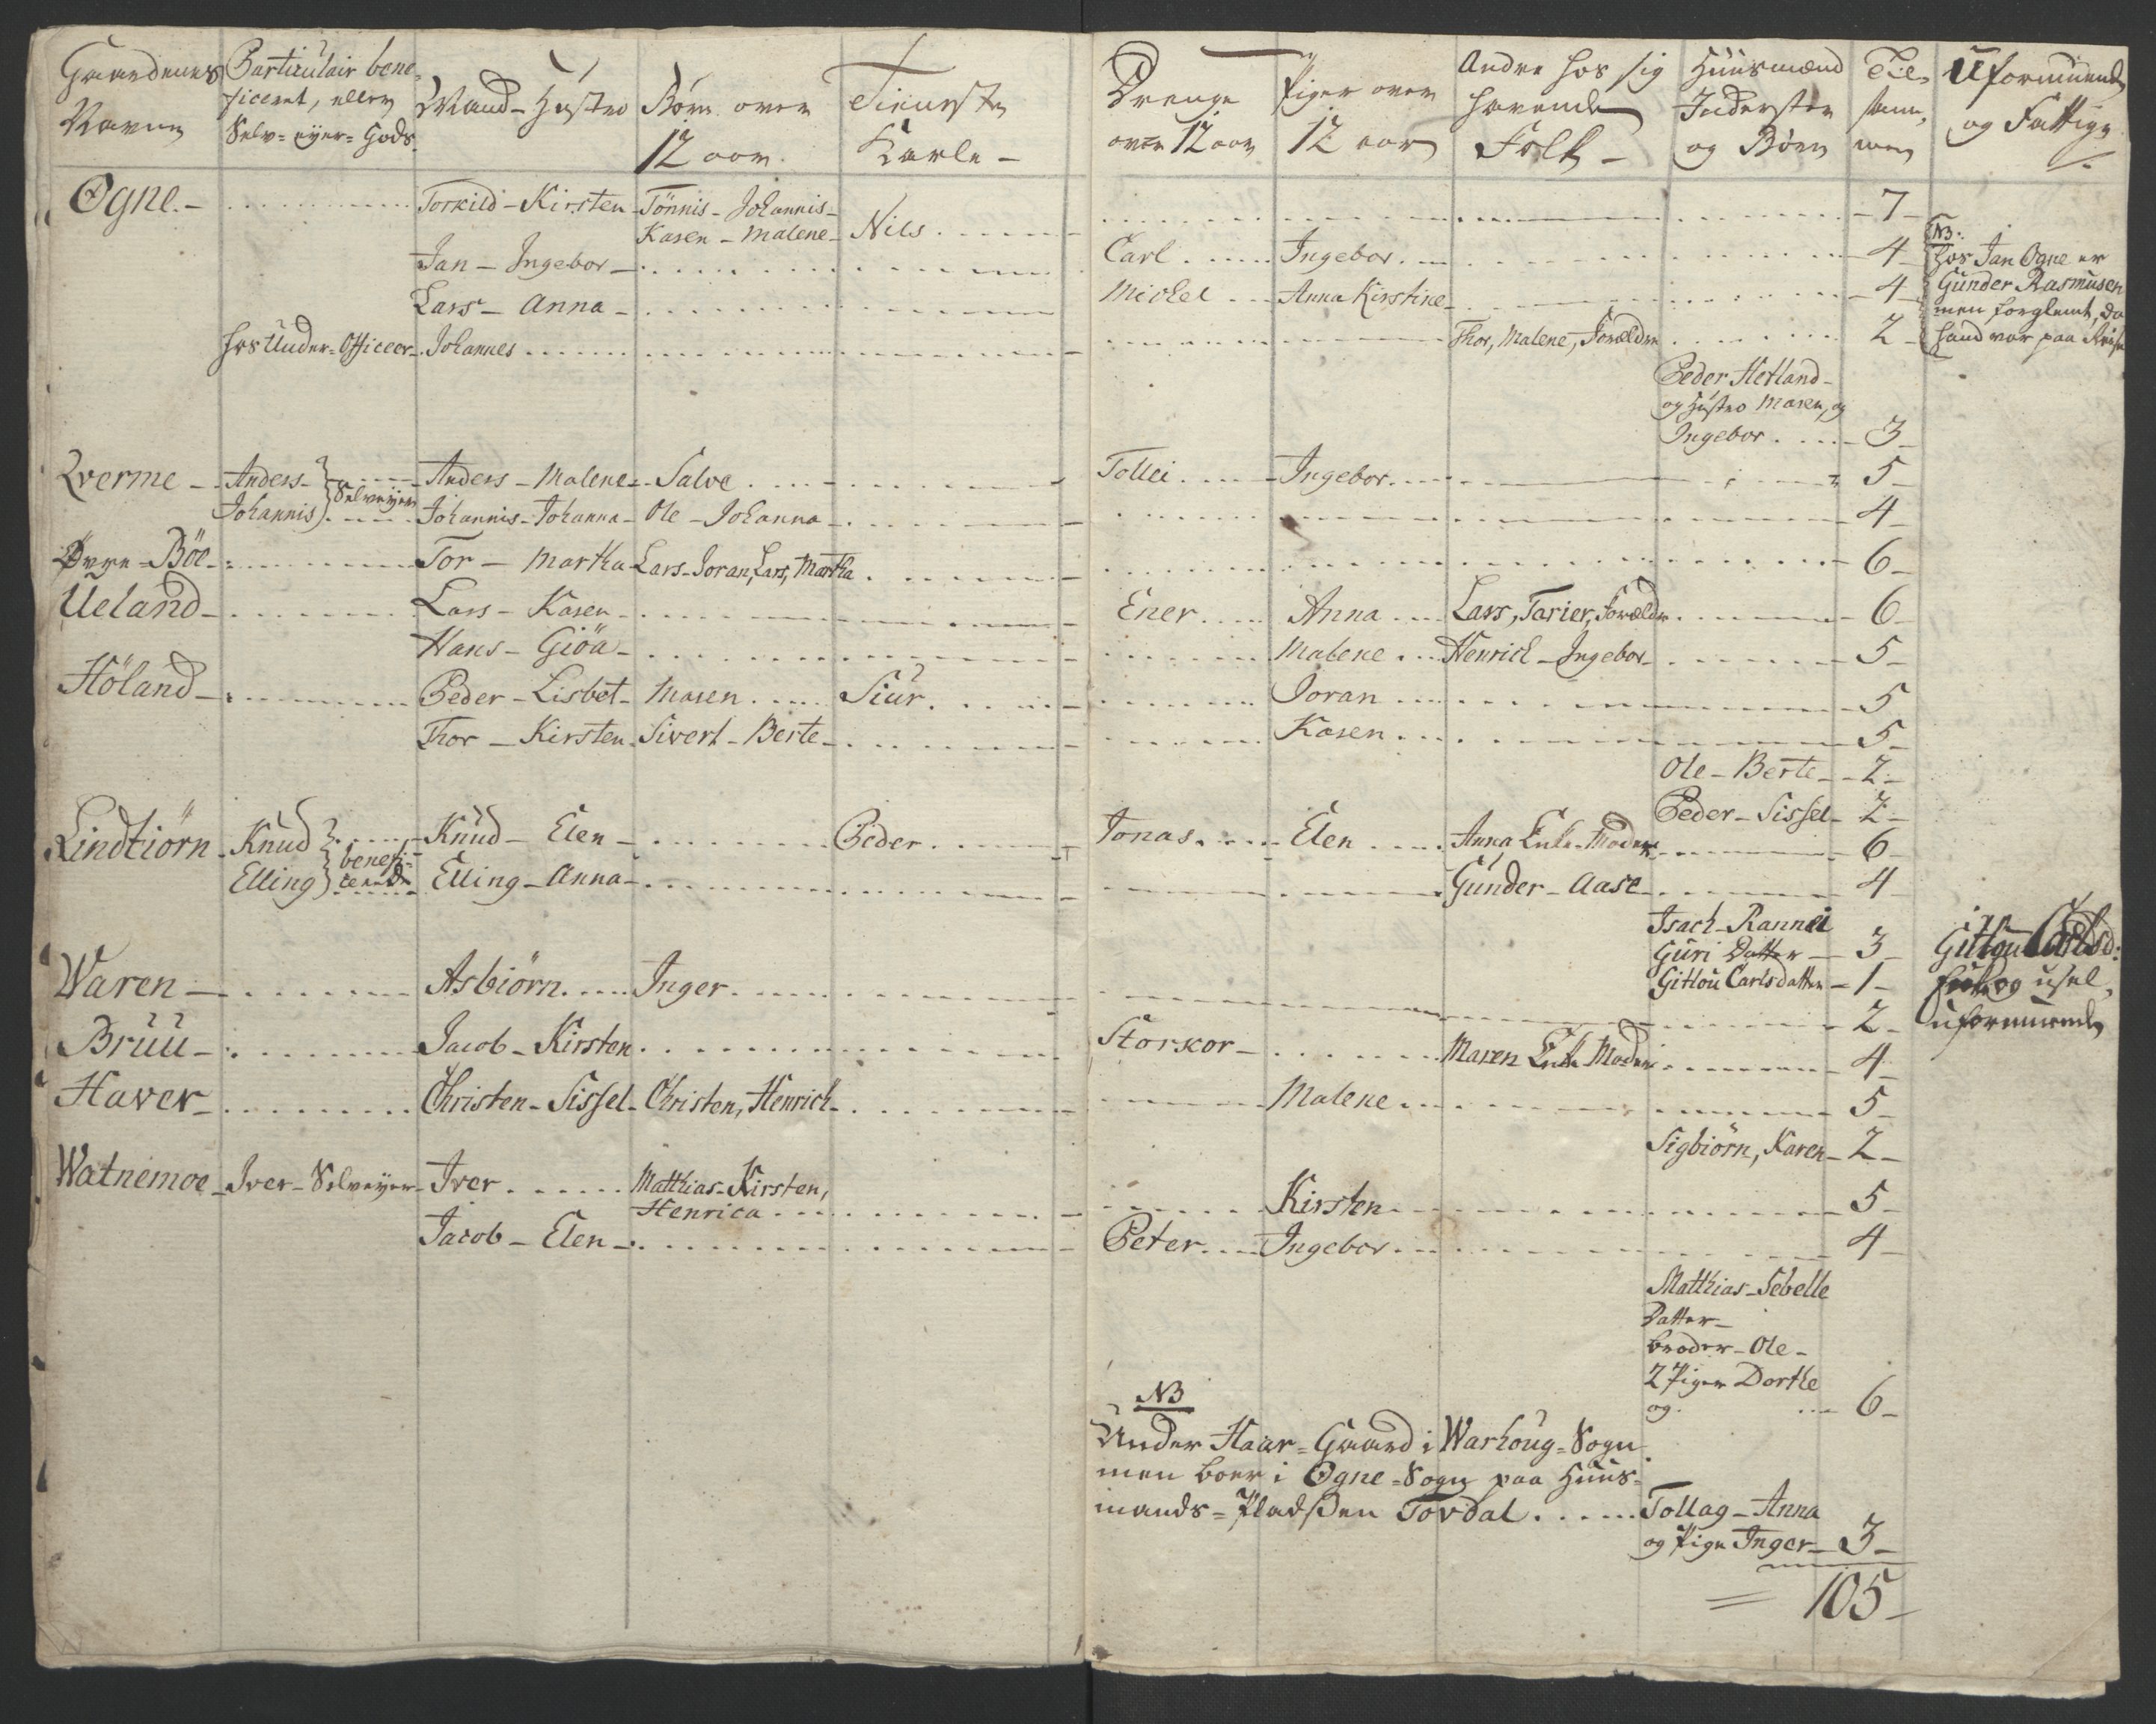 Gaardenes Navne
Particulair beneficeret, eller Selv-eyer-Gods.
Mand - Hustro
Børn over 12 aar.
Tieneste Karle -
Drenge over 12 aar
Piger over 12 aar
Andre hos sig havende Folk -
Huusmænd Inderster og Børn
Tilsammen
Uformuende og Fattige
Ogne. - Torkild - Kirsten - Tönnis - Johannis - - 7 -
Karen - Malene - Nils
Jan - Ingebor - Carl Ingebor - 4 -
Lars - Anna - Michel Anna Kirstine - 4 -
NB:
hos Jan Ogne er
Gunder Rasmusen
men forglemt, da
hand var paa Reise
hos Under-Officeer - Johannes Thor, Malene, Forældre 2 -
Peder Hetland -
og Hustro Maren, og
Ingebor - 3 -
Qverme - Anders - Anders - Malene - Salve Tollei Ingebor 5 -
Selveyer
Johannis Johannis - Johanna - Ole - Johanna - 4 -
Øvre-Böe - Tor - Martha - Lars - Joran, Lars, Martha 6 -
Ueland - Lars - Karen - Ener Anna Lars, Tarier, Forældre 6 -
Hans - Giöa - Malene Henrich - Ingebor - 5 -
Höland - Peder - Lisbet - Maren Siur Joran 5 -
Thor - Kirsten - Sivert - Berte - Karen 5 -
Ole - Berte - 2 -
Peder - Sissel - 2 -
Lindtiörn - Knud Knud - Elen - Peder Jonas Elen Anna Enke-Moder 6 -
beneficerede
Elling Elling - Anna - Gunder - Aase - 4 -
Isach - Rannei
Guri Datter - 3 -
Gitlou Carlsdatter - 1 -
Gitlou Carlsd:
og usel,
uformuende
Waren - Asbiörn Inger 2 -
Bruu - Jacob - Kirsten Storkor - Maren Enke Moder 4 -
Haver - Christen - Sissel - Christen, Henrich - Malene 5 -
Sigbiörn, Karen - 2 -
Watnemoe - Iver - Selveyer - Iver Matthias - Kirsten,
Henrica Kirsten 5 -
Jacob - Elen - Peter Ingebor 4 -
Matthias - Sebelle
Datter -
broder - Ole -
2 Piger Dorthe
og 6 -
NB
Under Haar-Gaard i Warhoug-Sogn
men boer i Ogne-Sogn paa Huus-
mands-Pladsen Tovdal Tollag - Anna
og Pige Inger - 3 -
= 105 -